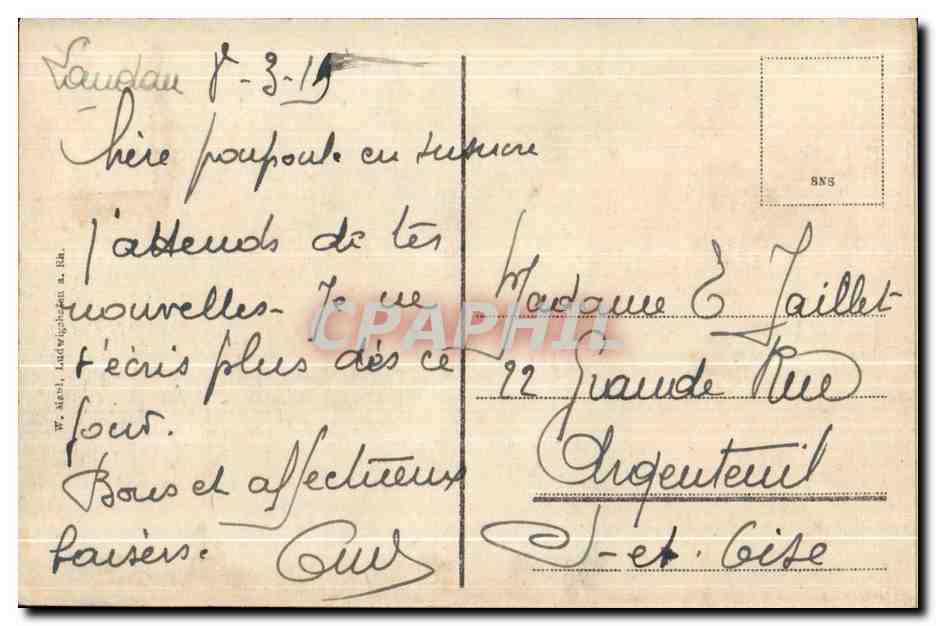 Landau 8-3-19
Chère poupoule en susucre
j'attends de tes
nouvelles - Je ne
t'écris plus dès ce
jour.
Bons et affectueux
baisers.
SNS
Madame E Jaillet
22 Grande Rue
Argenteuil
S-et-Oise
W. Ludwigshafen a. Rh.
CPAPHIL